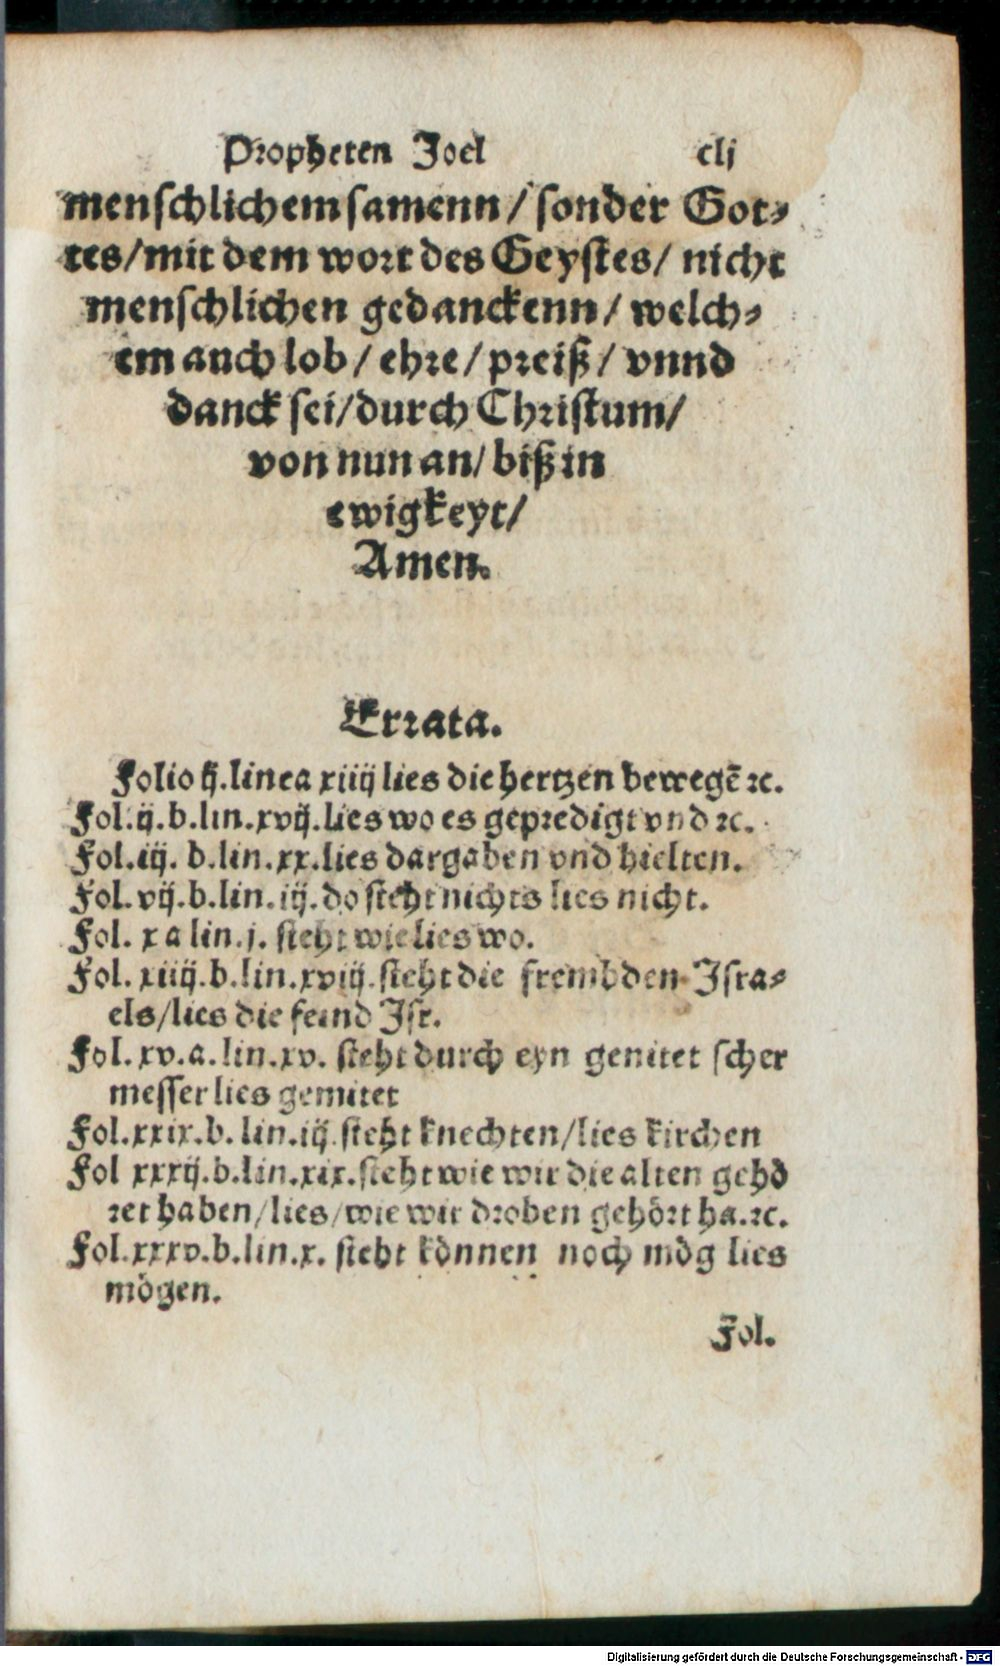 Propheten Joel clj
menschlichem samenn / sonder Got⸗
tes/mit dem wort des Geystes/ nicht
menschlichen gedanckenn / welch⸗
em auch lob / ehre / preiß / vnnd
danck sei/durch Christum/
von nun an/ biß in
ewigkeyt/
Amen.
Errata.
Folio ij.linea xiiij lies die hertzen bewegē ꝛc.
Fol.ij.b.lin.xvij.lies wo es gepredigt vnd ꝛc.
Fol.iij. b.lin.xx.lies dargaben vnd hielten.
Fol.vij.b.lin.iij.do steht nichts lies nicht.
Fol. x a lin.j. steht wie lies wo.
Fol. xiiij.b.lin.xviij.steht die frembden Isra⸗
els/lies die feind Isr.
Fol.xv.a.lin.xv. steht durch eyn genitet scher
messer lies gemitet
Fol.xxix.b.lin.iij.steht knechten/lies kirchen
Fol xxxij.b.lin.xix.steht wie wir die alten gehö
ret haben/lies/wie wir droben gehört ha.ꝛc.
Fol.xxxv.b.lin.x. steht können noch mög lies
mögen.
Fol.
Digitalisierung gefördert durch die Deutsche Forschungsgemeinschaft - DFG